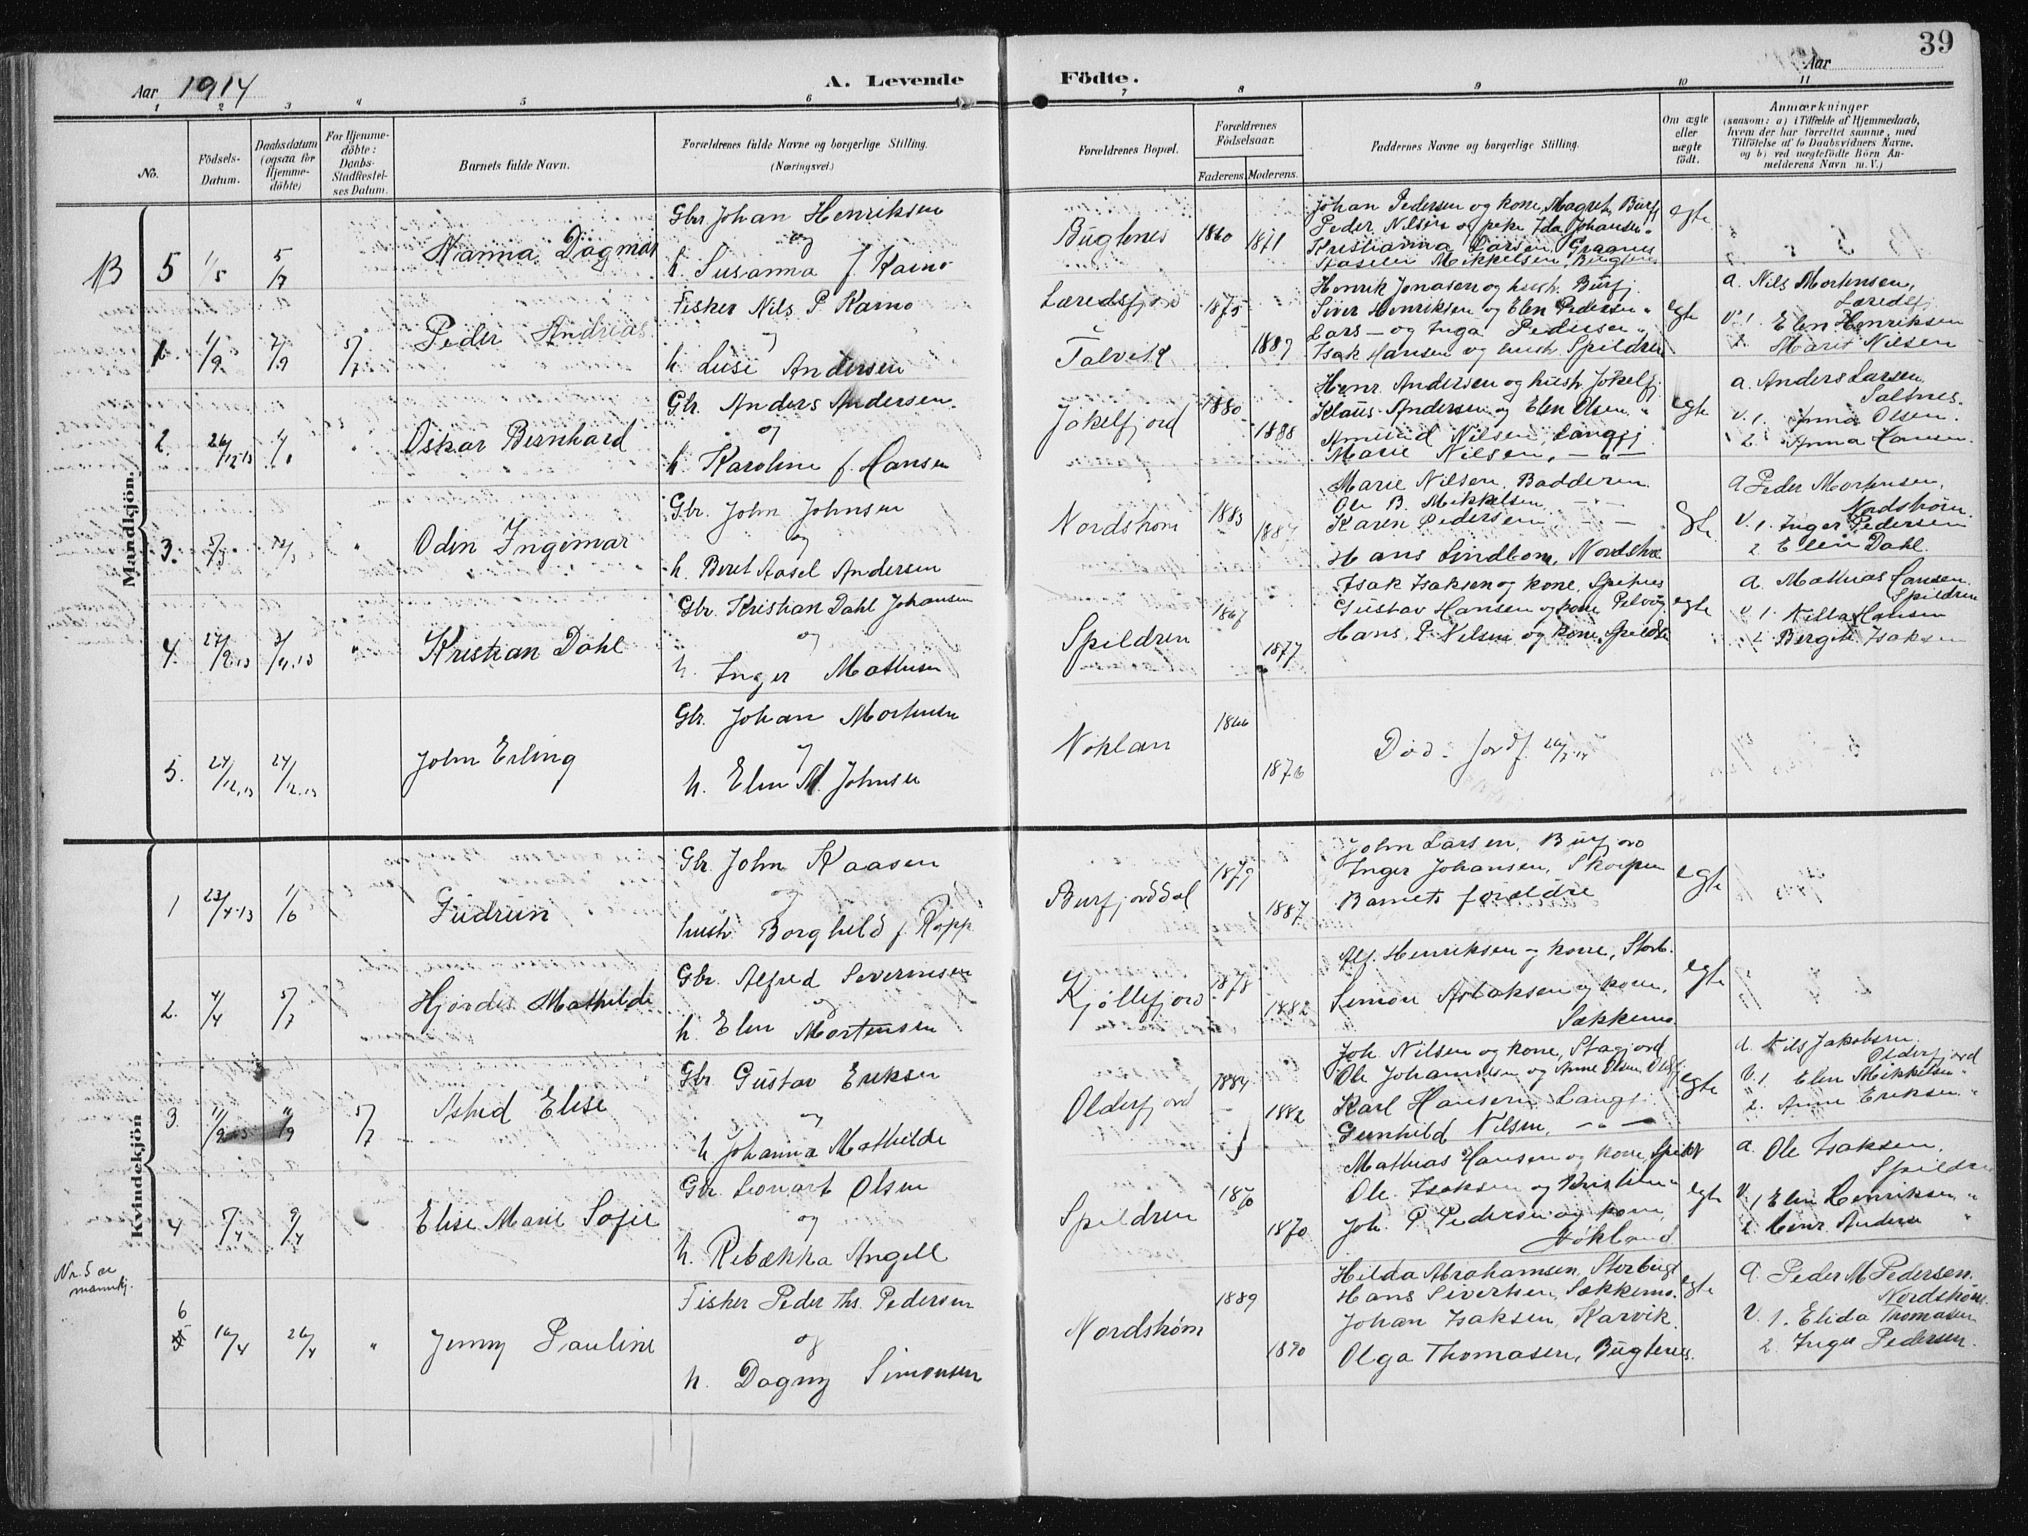 39
Aar 1914
A. Levende
Födte.
Aar
1 2 3 4 5 6 7 8 9 10 11
No.
Födsels-
Datum.
Daabsdatum
(ogsaa for
Hjemme-
döbte)
For Hjemme-
döbte:
Daabs-
Stadfæstel-
ses Datum.
Barnets fulde Navn.
Forældrenes fulde Navne og borgerlige Stilling.
(Næringsvei.)
Forældrenes Bopæl.
Forældrenes
Födselsaar.
Faderens. Moderens.
Faddernes Navne og borgerlige Stilling.
Om ægte
eller
uægte
født.
Anmærkninger
(saasom: a) i Tilfælde af Hjemmedaab,
hvem der har forrettet samme, med
Tilföielse af to Daabsvidners Navne.
og b) ved uægtefödte Börn An-
melderens Navn m. V.)
Mandkjön.
5 1/5 5/7
Nanna Dagmar
Gbr Johan Henriksen
og
h. Susanna f. Karno
Bugtenes 1860 1871
Johan Pedersen og kone Magret, Burfj
Peder Nilsen og pike Ida Johansen
Kristianna Larsen
Mikkelsen, Bugten
egte
1. 1/9 21/9 5/7
Peder Andreas
Fisker Nils P Karno
og
h Lusi Andersen
Læredsfjord
Talvik 1875 1889
Henrik Jonasen og hustr. Burfj.
Siver Henriksen og Elen Pedersen "
Lars - og Inga Pedersen "
Isak Hansen og hustr Spildren
egte
a. Nils Mortensen,
Læredsfj
V. 1. Elen Henriksen
2. Marit Nilsen
2. 26/12-13
Oskar Bernhard
Gbr. Anders Andersen.
og
h. Karoline f Hansen
Jøkelfjord 1880 1888
Henr. Andersen og hustr. Jøkelfj.
Klaus Andersen og Elen Olsen "
Amund Nilsen, Langfj
Marie Nilsen, - " -
egte
a. Anders Larsen
Saltnes.
V. 1. Anna Olsen
2. Anna Hansen.
3. 5/3
Oden Ingemar
Gbr. John Johnsen
og
h. Beret Aasel Andersen
Nordstrøm 1883 1887
Marie Nilsen, Badderen
Ole B. Mikkelsen,
Karen Pedersen
Hans Lindbom, Nordstrø
egte
a Peder Mortensen,
Nordstrøm
V. 1. Inger Pedersen
2 Elen Dahl.
4. 27/9.13 3/4.13 "
Kristian Dahl
Gbr. Kristian Dahl Johansen
og
h. Inger Mathisen
Spildren 1867 1877
Isak Isaksen og kone,
Gustav Hansen og kone
Hans P. Nilsen og kone, Spildre
egte
a. Mathias Hansen
Spildren
V 1. Hansen
2 Bergit Isaksen
5. 27/12.13 27/12.13
John Erling
Gbr. Johan Mortensen
og
h. Elen M. Johnsen
Noklan 1866 1876
Død. Jordf.
Kvindekjön
1 23/4-13 1/6
Gudrun
Gbr John Kaasen
og
hustr Borghild f. Rapp
Burfjorddal 1879 1887
John Larsen, Burfjord
Inger Johansen, Skorpen
Barnets forældre
egte
2. 4/4 5/7
Hjordis Mathilde
Gbr. Alfred Severinsen
og
h. Elen Mortensen
Kjøllefjord 1878 1882
Alf. Henriksen og kone, Storb.
Simon Aslaksen og kone,
Sækkemo.
egte
3. 11/9 13 "/9 5/7
Astrid Elise
Gbr Gustav Eriksen
og
h Johanna Mathilde
Olderfjord 1884 1882
Joh Nilsen og kone, Stagjord
Ole Johansen og Anne Olsen, Oldfj
Karl Hansen Langfj.
Gunhild Nilsen, - " -
egte
a. Nils Jakobsen
Olderfjord
V. 1. Elen Mikkelsen "
2. Anne Eriksen "
4 7/4 9/4
Elise Marie Sofie
Gbr Lionart Olsen
og
h. Rebækka Angell
Spildren 1870 1870
Mathias Hansen og kone, Spildr
Ole Isaksen og
Joh. P. Pedersen og kone,
Nøkland
egte
a. Ole Isaksen,
Spildren
V. 1 Elen Henriksen "
2 Henr. Andersen "
Nr. 5 er
mannkj.
6 16/4 26/4 "
Jenny Pauline
Fisker Peder Ths. Pedersen
og
h. Dagny Simonsen
Nordstrøm 1889 1890
Hilda Abrahamsen, Storbugt
Hans Sivertsen, Sækkemo.
Johan Isaksen, Karvik.
Olga Thomasen, Bugtenes.
egte
a. Peder M Pedersen.
Nordstrøm
V. 1. Elida Thomasen
2. Inga Pedersen.